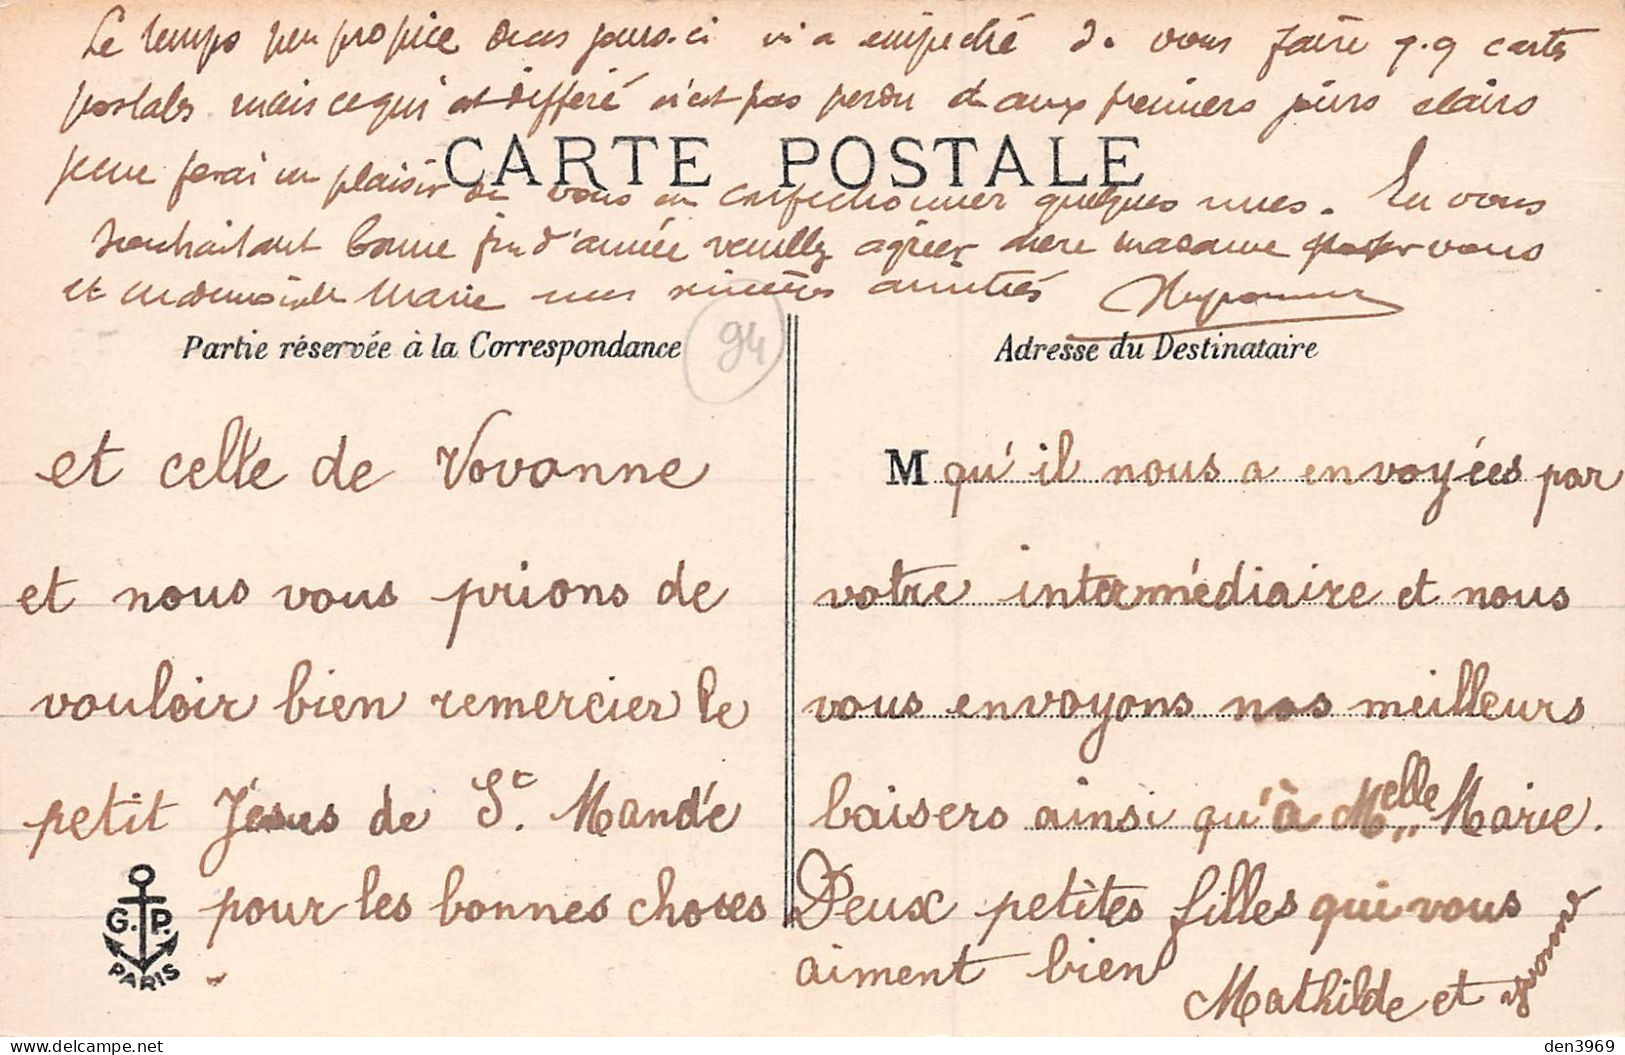 Le temps peu propice de ces jours-ci m'a empêché de vous faire q.q cartes
postales mais ce qui est différé n'est pas perdu et aux premiers jours clairs
CARTE POSTALE
je me ferai un plaisir de vous en confectionner quelques unes. En vous
souhaitant bonne fin d'année veuillez agréer chère madame pour vous
et mademoiselle Marie nos sincères amitiés
94
Partie réservée à la Correspondance
Adresse du Destinataire
et celle de Vovonne
et nous vous prions de
vouloir bien remercier le
petit Jésus de St. Mandé
pour les bonnes choses
M qu'il nous a envoyées par
votre intermédiaire et nous
vous envoyons nos meilleurs
baisers ainsi qu'à Melle Marie.
Deux petites filles qui vous
aiment bien
Mathilde et Yvonne
G. P.
PARIS
den3969